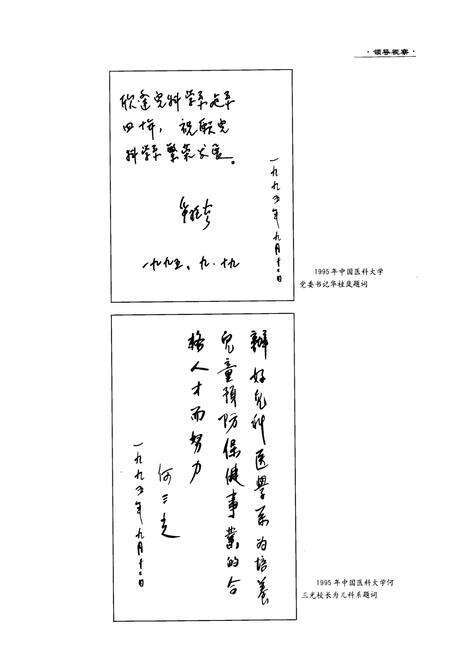 ·领导视察·
欣逢儿科学系建系
四十年，祝愿儿
科学系繁荣发展。
一九九五、九、十九
一九九五年九月十二日
1995年中国医科大学
党委书记华桂茂题词
办好儿科医学系为培养
儿童预防保健事业的合
格人才而努力
何三光
一九九五年九月十二日
1995年中国医科大学何
三光校长为儿科系题词